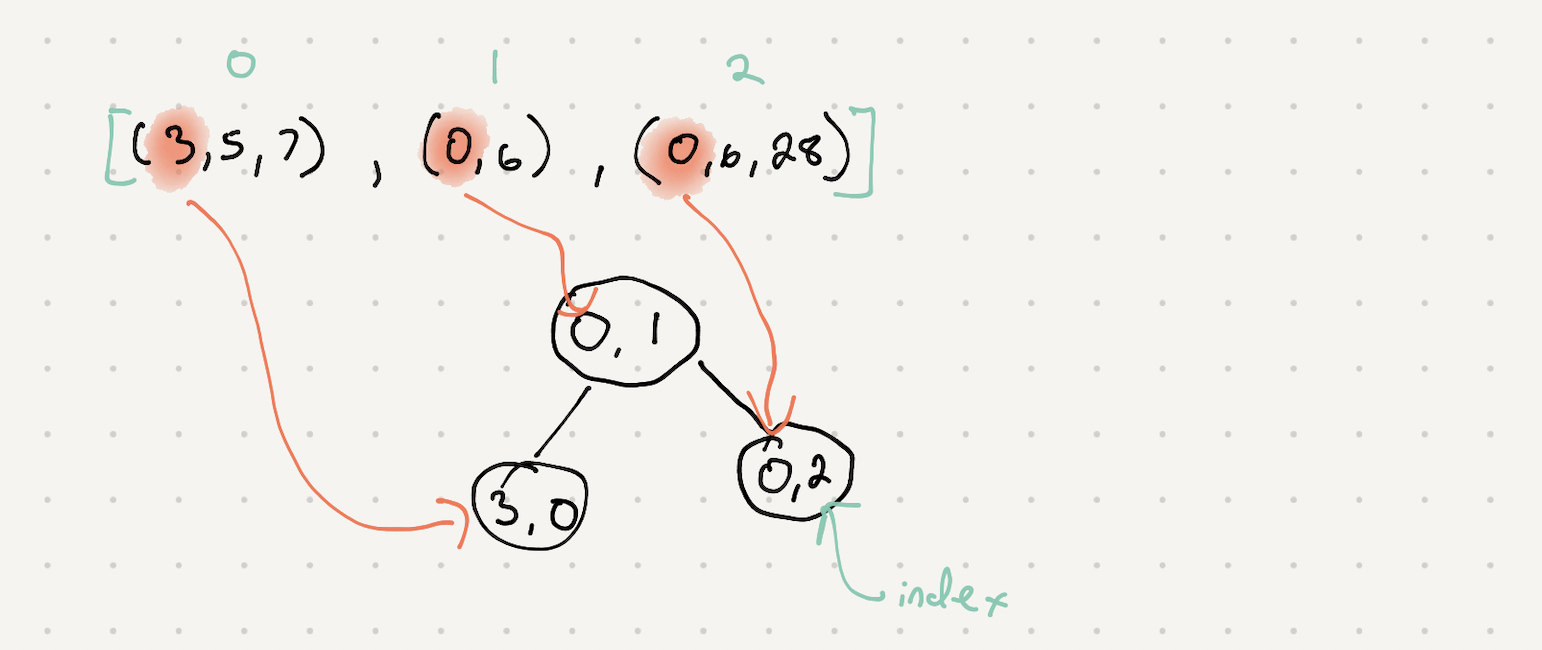 0 1 2
[(3,5,7) , (0,6) , (0,6,28)]
0, 1
3,0 0,2
index